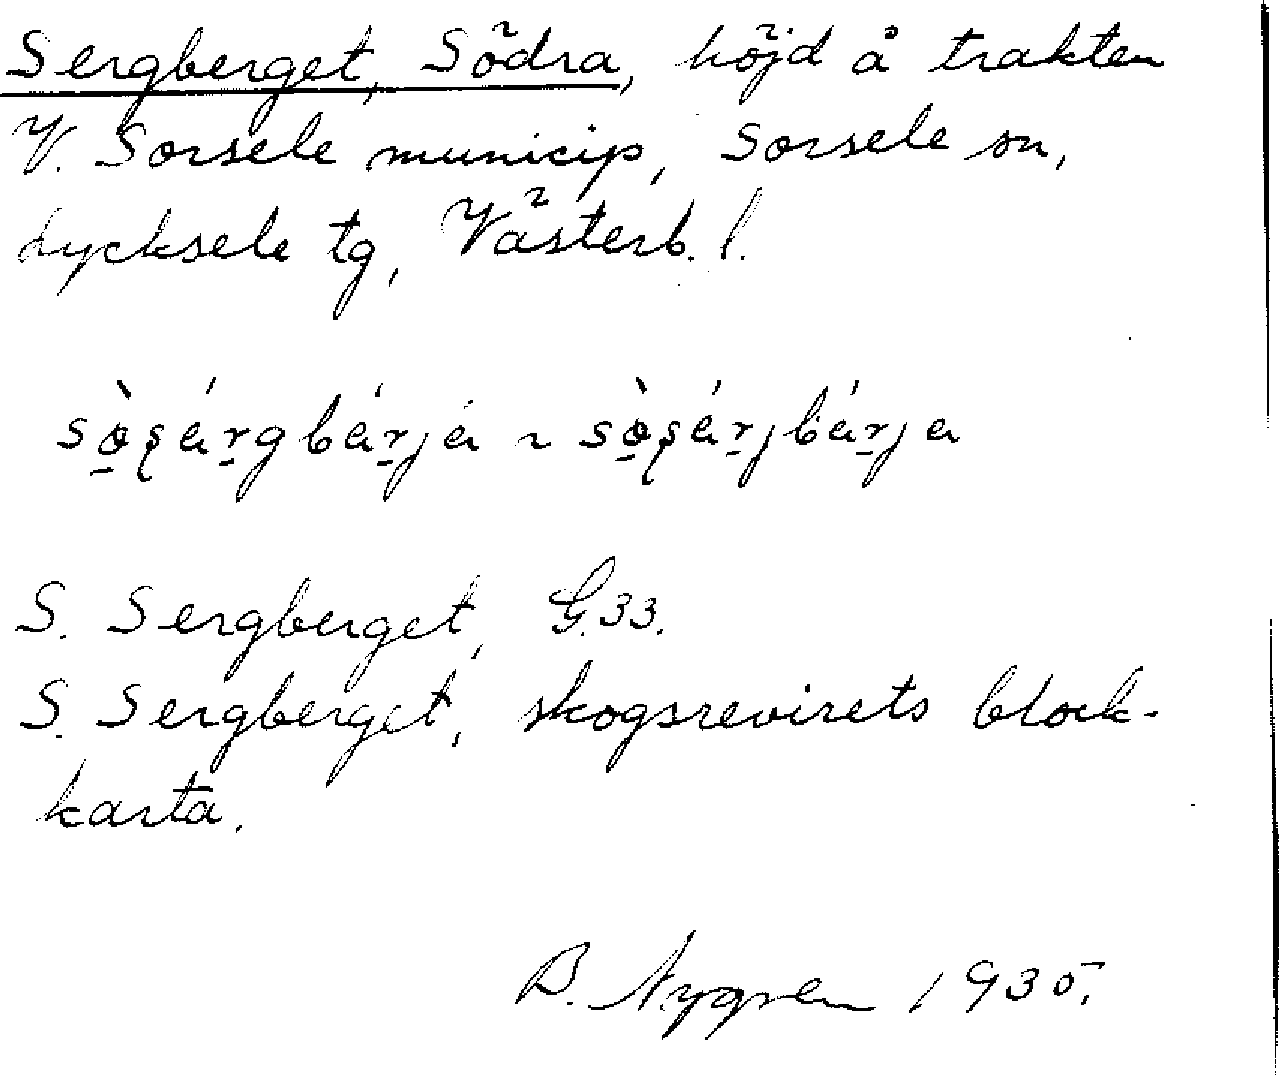 Sergberget, Södra, höjd å trakten
V. Sorsele municip, Sorsele sn,
Lycksele tg, Västerb. l.
S. Sergberget, G.33.
S. Sergberget, skogsrevirets block-
karta.
B. Nygren 1935.